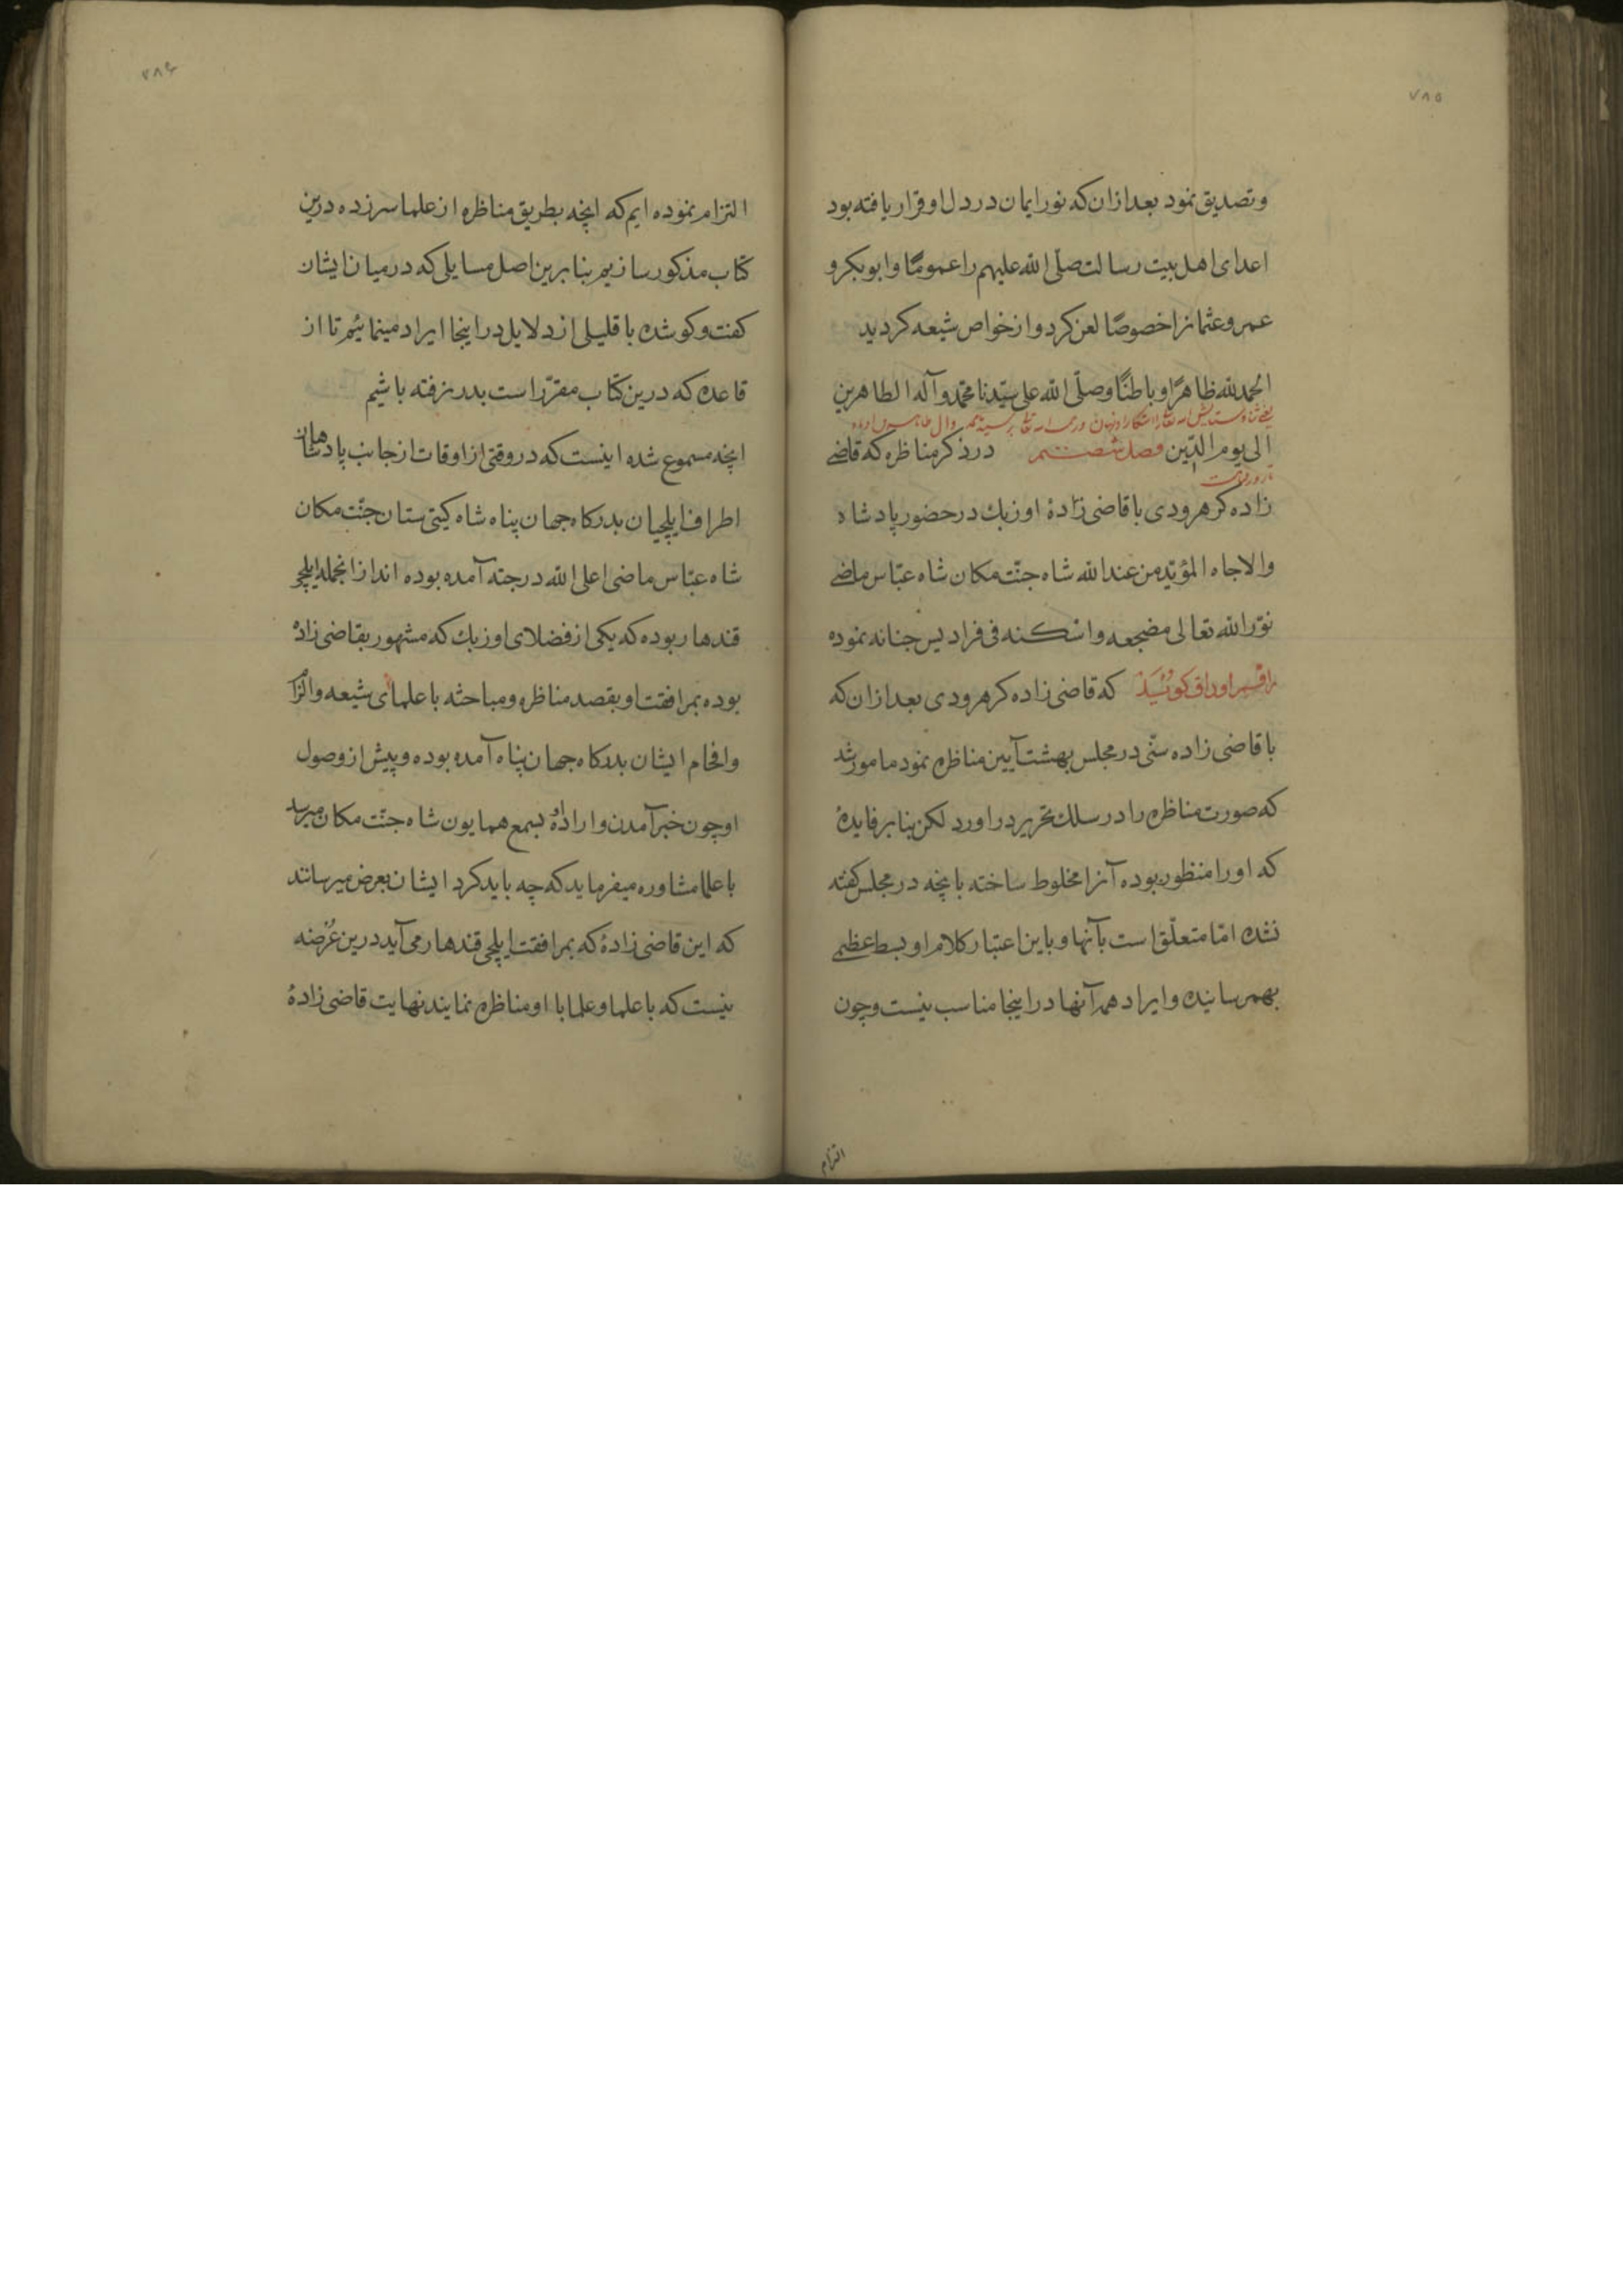 ۷۸۵
و تصدیق نمود بعد ازان که نور ایمان در دل او قرار یافته بود
اعدای اهل بیت رسالت صلّی الله علیهم را عمومًا و ابو بکر و
عمر و عثمانرا خصوصًا لعن کرد و از خواص شیعه کردید
الحمد لله ظاهرًا و باطنًا و صلّی الله علی سیّدنا محمّد و آله الطاهرین
الی یوم الدّین فصل ششم در ذکر مناظره که قاضی
زاده کرهرودی با قاضی زادهٔ اوزبك در حضور پادشاه
والاجاه المؤیّد من عند الله شاه جنّت مکان شاه عبّاس ماضی
نوّر الله تعالی مضجعه و اسکنه فی فرادیس جنانه نموده
راقم اوراق کوید که قاضی زاده کرهرودی بعد ازان که
با قاضی زاده سنّی در مجلس بهشت آیین مناظره نمود مامور شد
که صورت مناظره را در سلك تحریر در اورد لکن بنا بر فایدهٔ
که او را منظور بوده آنرا مخلوط ساخته بانچه در مجلس کفته
نشده امّا متعلّق است بآنها و باین اعتبار کلام او بسط عظیمی
بهم رسانیده و ایراد همه آنها در اینجا مناسب نیست و چون
التزام
۷۸۶
التزام نموده ایم که انچه بطریق مناظره از علما سر زده درین
کتاب مذکور سازیم بنا برین اصل مسایلی که در میان ایشان
کفت و کو شده با قلیلی از دلایل در اینجا ایراد مینمائیم تا از
قاعده که درین کتاب مقرّر است بدر نرفته باشیم
انچه مسموع شده اینست که در وقتی از اوقات از جانب پادشاهان
اطراف ایلچیان بدرکاه جهان پناه شاه کیتی ستان جنّت مکان
شاه عبّاس ماضی اعلی الله درجته آمده بوده اند از انجمله ایلچی
قندهار بوده که یکی از فضلای اوزبك که مشهور بقاضی زاده
بوده بمرافقت او بقصد مناظره و مباحثه با علمای شیعه و الزام
و افحام ایشان بدرکاه جهان پناه آمده بوده و پیش از وصول
او چون خبر آمدن و اراده او بسمع همایون شاه جنّت مکان میرسد
با علما مشاوره میفرماید که چه باید کرد ایشان بعرض میرسانند
که این قاضی زادهٔ که بمرافقت ایلچی قندهار می آید درین عرضه
نیست که با علما و علما با او مناظره نمایند نهایت قاضی زادهٔ